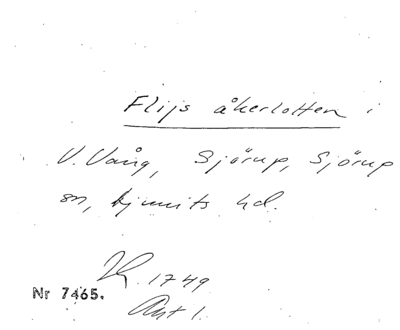 Flijs åkerlotten i
V. Vång, Sjörup, Sjörup
sn, Ljunits hd.
1749
Nr 7465.
Akt 1.